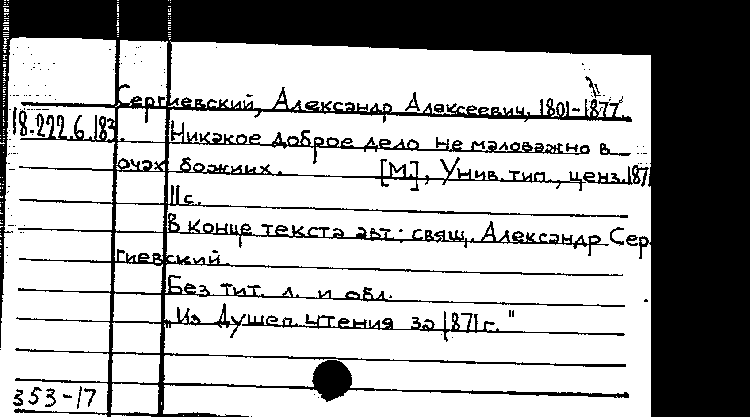 Сергиевский, Александр Алексеевич, 1801-1877.
18.222.6.183. Никакое доброе дело не маловажно в
очах божиих. [М.], Унив. тип., ценз. 1871
11 с.
В конце текста авт.: свящ. Александр Сер-
гиевский.
Без тит. л. и обл.
„Из Душеп. чтения за 1871 г."
353-17